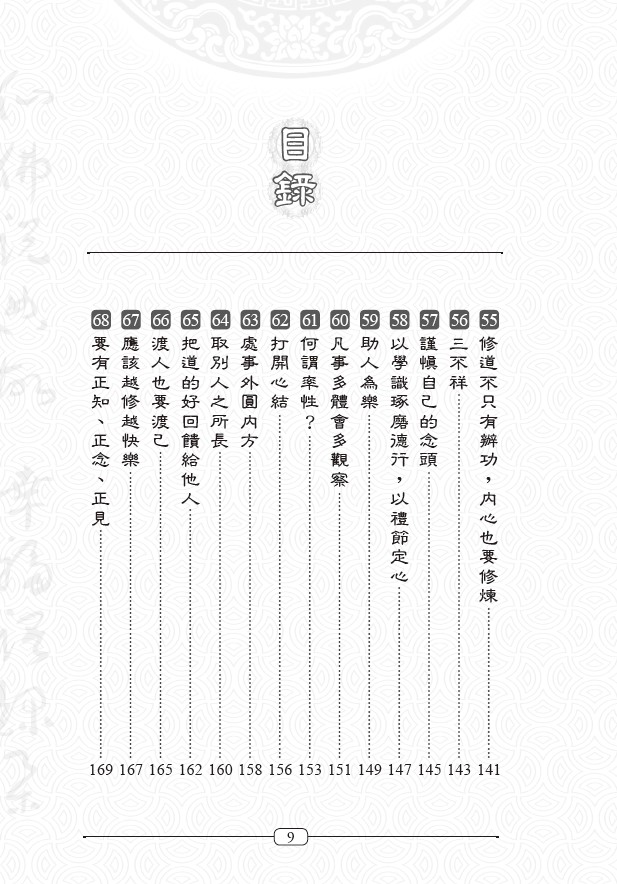 目錄
55 修道不只有辦功，內心也要修煉 141
56 三不祥 143
57 謹慎自己的念頭 145
58 以學識琢磨德行，以禮節定心 147
59 助人為樂 149
60 凡事多體會多觀察 151
61 何謂率性？ 153
62 打開心結 156
63 處事外圓內方 158
64 取別人之所長 160
65 把道的好回饋給他人 162
66 渡人也要渡己 165
67 應該越修越快樂 167
68 要有正知、正念、正見 169
9